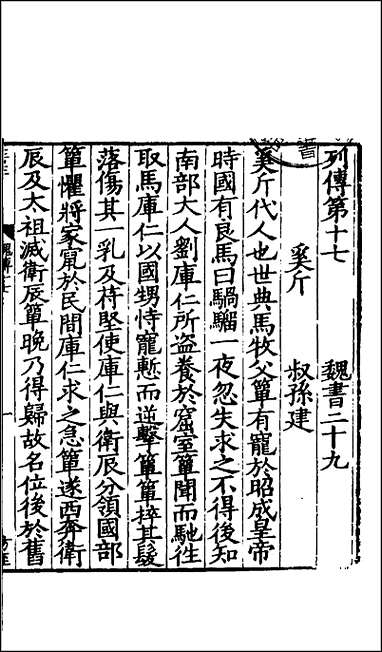 列傳第十七　魏書二十九
奚斤　叔孫建
奚斤代人也世典馬牧父簞有寵於昭成皇帝
時國有良馬曰騧騮一夜忽失求之不得後知
南部大人劉庫仁所盗養於窟室簞聞而馳往
取馬庫仁以國甥恃寵慙而逆擊簞簞捽其髮
落傷其一乳及苻堅使庫仁與衛辰分領國部
簞懼將家竄於民間庫仁求之急簞遂西奔衛
辰及太祖滅衛辰簞晚乃得歸故名位後於舊